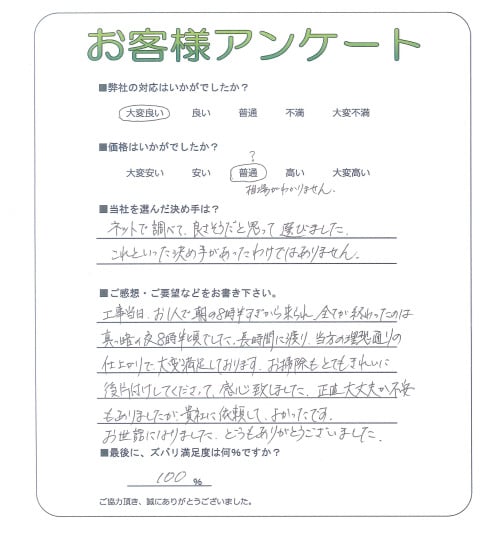 お客様アンケート
■弊社の対応はいかがでしたか?
大変良い 良い 普通 不満 大変不満
■価格はいかがでしたか?
?
大変安い 安い 普通 高い 大変高い
相場がわかりません。
■当社を選んだ決め手は?
ネットで調べて、良さそうだと思って選びました。
これといった決め手があったわけではありません。
■ご感想・ご要望などをお書き下さい。
工事当日、お1人で朝の8時半すぎから来られ、全てが終わったのは
真っ暗の夜8時半頃でした。長時間に渡り、当方の理想通りの
仕上がりで大変満足しております。お掃除もとてもきれいに
後片付けしてくださって、感心致しました。正直大丈夫か不安
もありましたが貴社に依頼して、よかったです。
お世話になりました。どうもありがとうございました。
■最後に、ズバリ満足度は何%ですか?
100 %
ご協力頂き、誠にありがとうございました。